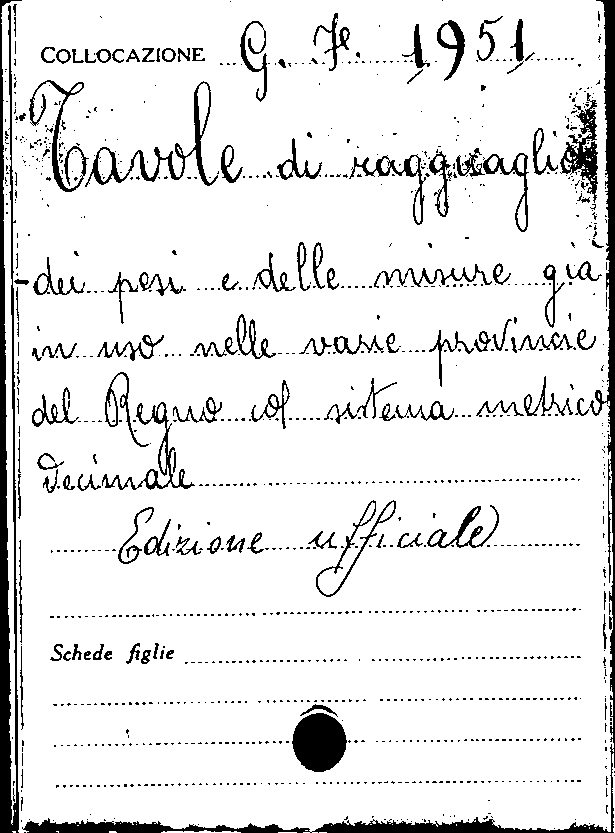 COLLOCAZIONE G. F. 1951
Tavole di ragguaglio
dei pesi e delle misure già
in uso nelle varie provincie
del Regno col sistema metrico
decimale
Edizione ufficiale
Schede figlie